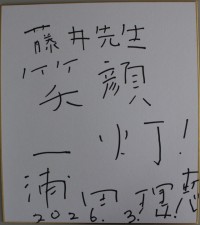 藤井先生
笑顔
一灯!
浦田理恵
2026.3.4.